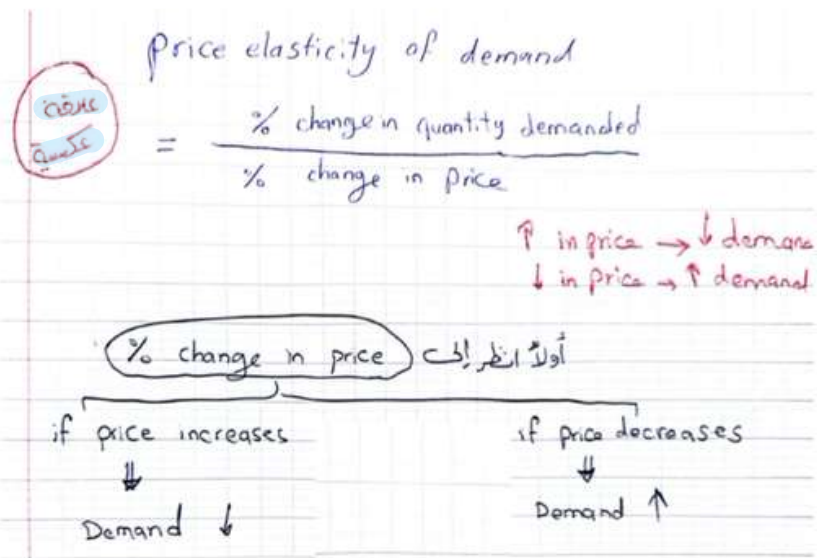 Price elasticity of demand
علاقة
عكسية
= % change in quantity demanded
% change in price
↑ in price → ↓ demand
↓ in price → ↑ demand
% change in price أولاً انظر إلى
if price increases
⇓
Demand ↓
if price decreases
⇓
Demand ↑